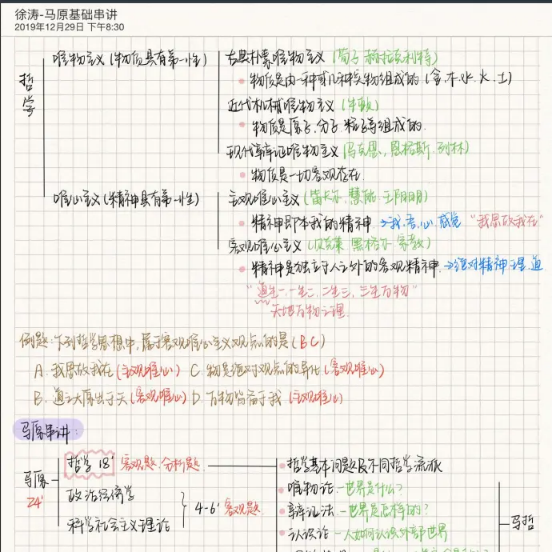 徐涛-马原基础串讲
2019年12月29日 下午8:30
哲学
唯物主义 (物质具有第一性)
古典朴素唯物主义 (荀子 赫拉克利特)
• 物质是由一种或几种实物组成的 (金木水火土)
近代机械唯物主义 (牛顿)
• 物质是原子、分子 粒子等组成的.
现代辩证唯物主义 (马克思、恩格斯、列林)
• 物质是一切客观存在.
唯心主义 (精神具有第一性)
主观唯心主义 (笛卡尔、慧能、王阳明)
• 精神即本我的精神 →我、吾、心、感觉 "我思故我在"
客观唯心主义 (贝克莱 黑格尔 宗教)
• 精神是独立于人之外的客观精神. →绝对精神、理、道
"道生一、一生二、二生三、三生万物"
天地万物之理.
例题:下列哲学思想中,属于客观唯心主义观点的是 (BC)
A. 我思故我在 (主观唯心) C 物是绝对观念的异化 (客观唯心)
B. 道之大原出于天 (客观唯心) D 万物皆备于我 (主观唯心)
马原串讲:
马原
24'
哲学 18' 客观题、分析题
政治经济学
科学社会主义理论
4-6' 客观题
• 哲学基本问题及不同哲学流派
• 唯物论 - 世界是什么?
• 辩证法 - 世界是怎样的?
• 认识论 - 人如何认识外部世界
马哲